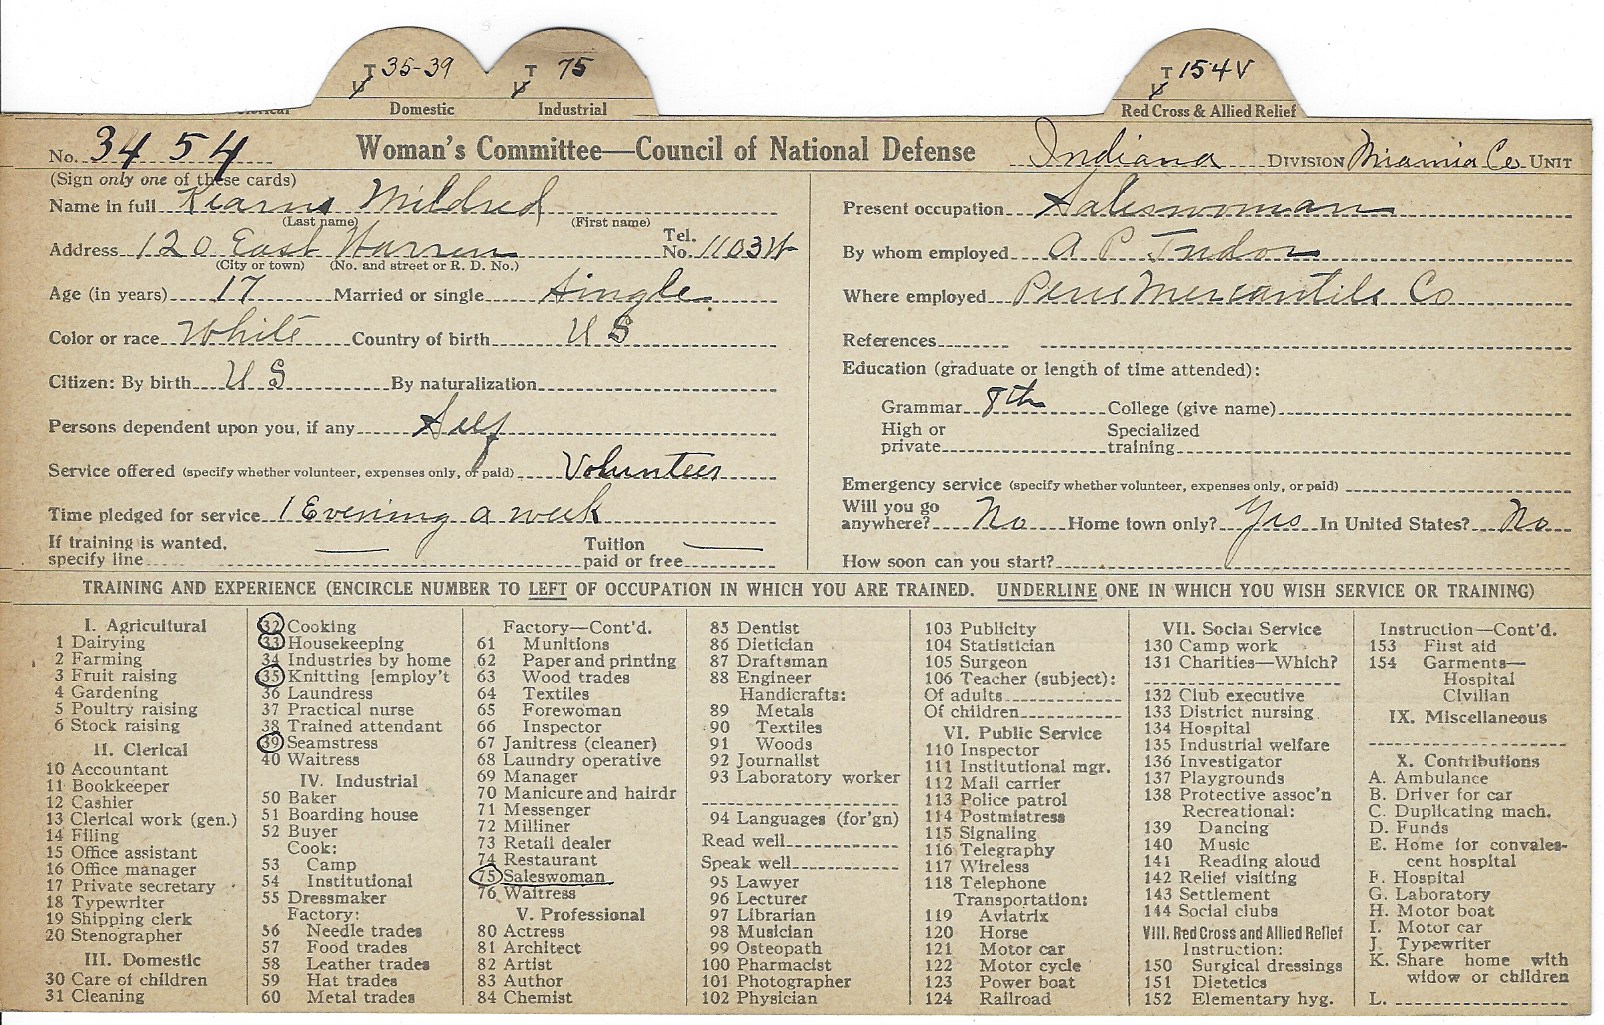 T 35-39 T 75 T 154 V
V V V
Domestic Industrial Red Cross & Allied Relief
No. 3454 Woman's Committee—Council of National Defense Indiana DIVISION Miamia Co UNIT
(Sign only one of these cards)
Name in full Kearns Mildred
(Last name) (First name)
Address 120 East Warren Tel. No. 1103W
(City or town) (No. and street or R. D. No.)
Age (in years) 17 Married or single Single
Color or race White Country of birth U S
Citizen: By birth U S By naturalization
Persons dependent upon you, if any Self
Service offered (specify whether volunteer, expenses only, or paid) Volunteer
Time pledged for service 1 Evening a week
If training is wanted, specify line — Tuition paid or free —
Present occupation Saleswoman
By whom employed A P Tudor
Where employed Peru Mercantile Co
References
Education (graduate or length of time attended):
Grammar 8th College (give name)
High or private Specialized training
Emergency service (specify whether volunteer, expenses only, or paid)
Will you go anywhere? No Home town only? Yes In United States? No
How soon can you start?
TRAINING AND EXPERIENCE (ENCIRCLE NUMBER TO LEFT OF OCCUPATION IN WHICH YOU ARE TRAINED. UNDERLINE ONE IN WHICH YOU WISH SERVICE OR TRAINING)
I. Agricultural
1 Dairying
2 Farming
3 Fruit raising
4 Gardening
5 Poultry raising
6 Stock raising
II. Clerical
10 Accountant
11 Bookkeeper
12 Cashier
13 Clerical work (gen.)
14 Filing
15 Office assistant
16 Office manager
17 Private secretary
18 Typewriter
19 Shipping clerk
20 Stenographer
III. Domestic
30 Care of children
31 Cleaning
32 Cooking
33 Housekeeping
34 Industries by home
35 Knitting [employ't
36 Laundress
37 Practical nurse
38 Trained attendant
39 Seamstress
40 Waitress
IV. Industrial
50 Baker
51 Boarding house
52 Buyer
Cook:
53 Camp
54 Institutional
55 Dressmaker
Factory:
56 Needle trades
57 Food trades
58 Leather trades
59 Hat trades
60 Metal trades
Factory—Cont'd.
61 Munitions
62 Paper and printing
63 Wood trades
64 Textiles
65 Forewoman
66 Inspector
67 Janitress (cleaner)
68 Laundry operative
69 Manager
70 Manicure and hairdr
71 Messenger
72 Milliner
73 Retail dealer
74 Restaurant
75 Saleswoman
76 Waitress
V. Professional
80 Actress
81 Architect
82 Artist
83 Author
84 Chemist
85 Dentist
86 Dietician
87 Draftsman
88 Engineer
Handicrafts:
89 Metals
90 Textiles
91 Woods
92 Journalist
93 Laboratory worker
94 Languages (for'gn)
Read well
Speak well
95 Lawyer
96 Lecturer
97 Librarian
98 Musician
99 Osteopath
100 Pharmacist
101 Photographer
102 Physician
103 Publicity
104 Statistician
105 Surgeon
106 Teacher (subject):
Of adults
Of children
VI. Public Service
110 Inspector
111 Institutional mgr.
112 Mail carrier
113 Police patrol
114 Postmistress
115 Signaling
116 Telegraphy
117 Wireless
118 Telephone
Transportation:
119 Aviatrix
120 Horse
121 Motor car
122 Motor cycle
123 Power boat
124 Railroad
VII. Social Service
130 Camp work
131 Charities—Which?
132 Club executive
133 District nursing
134 Hospital
135 Industrial welfare
136 Investigator
137 Playgrounds
138 Protective assoc'n
Recreational:
139 Dancing
140 Music
141 Reading aloud
142 Relief visiting
143 Settlement
144 Social clubs
VIII. Red Cross and Allied Relief
Instruction:
150 Surgical dressings
151 Dietetics
152 Elementary hyg.
Instruction—Cont'd.
153 First aid
154 Garments—
Hospital
Civilian
IX. Miscellaneous
X. Contributions
A. Ambulance
B. Driver for car
C. Duplicating mach.
D. Funds
E. Home for convales-
cent hospital
F. Hospital
G. Laboratory
H. Motor boat
I. Motor car
J. Typewriter
K. Share home with
widow or children
L.